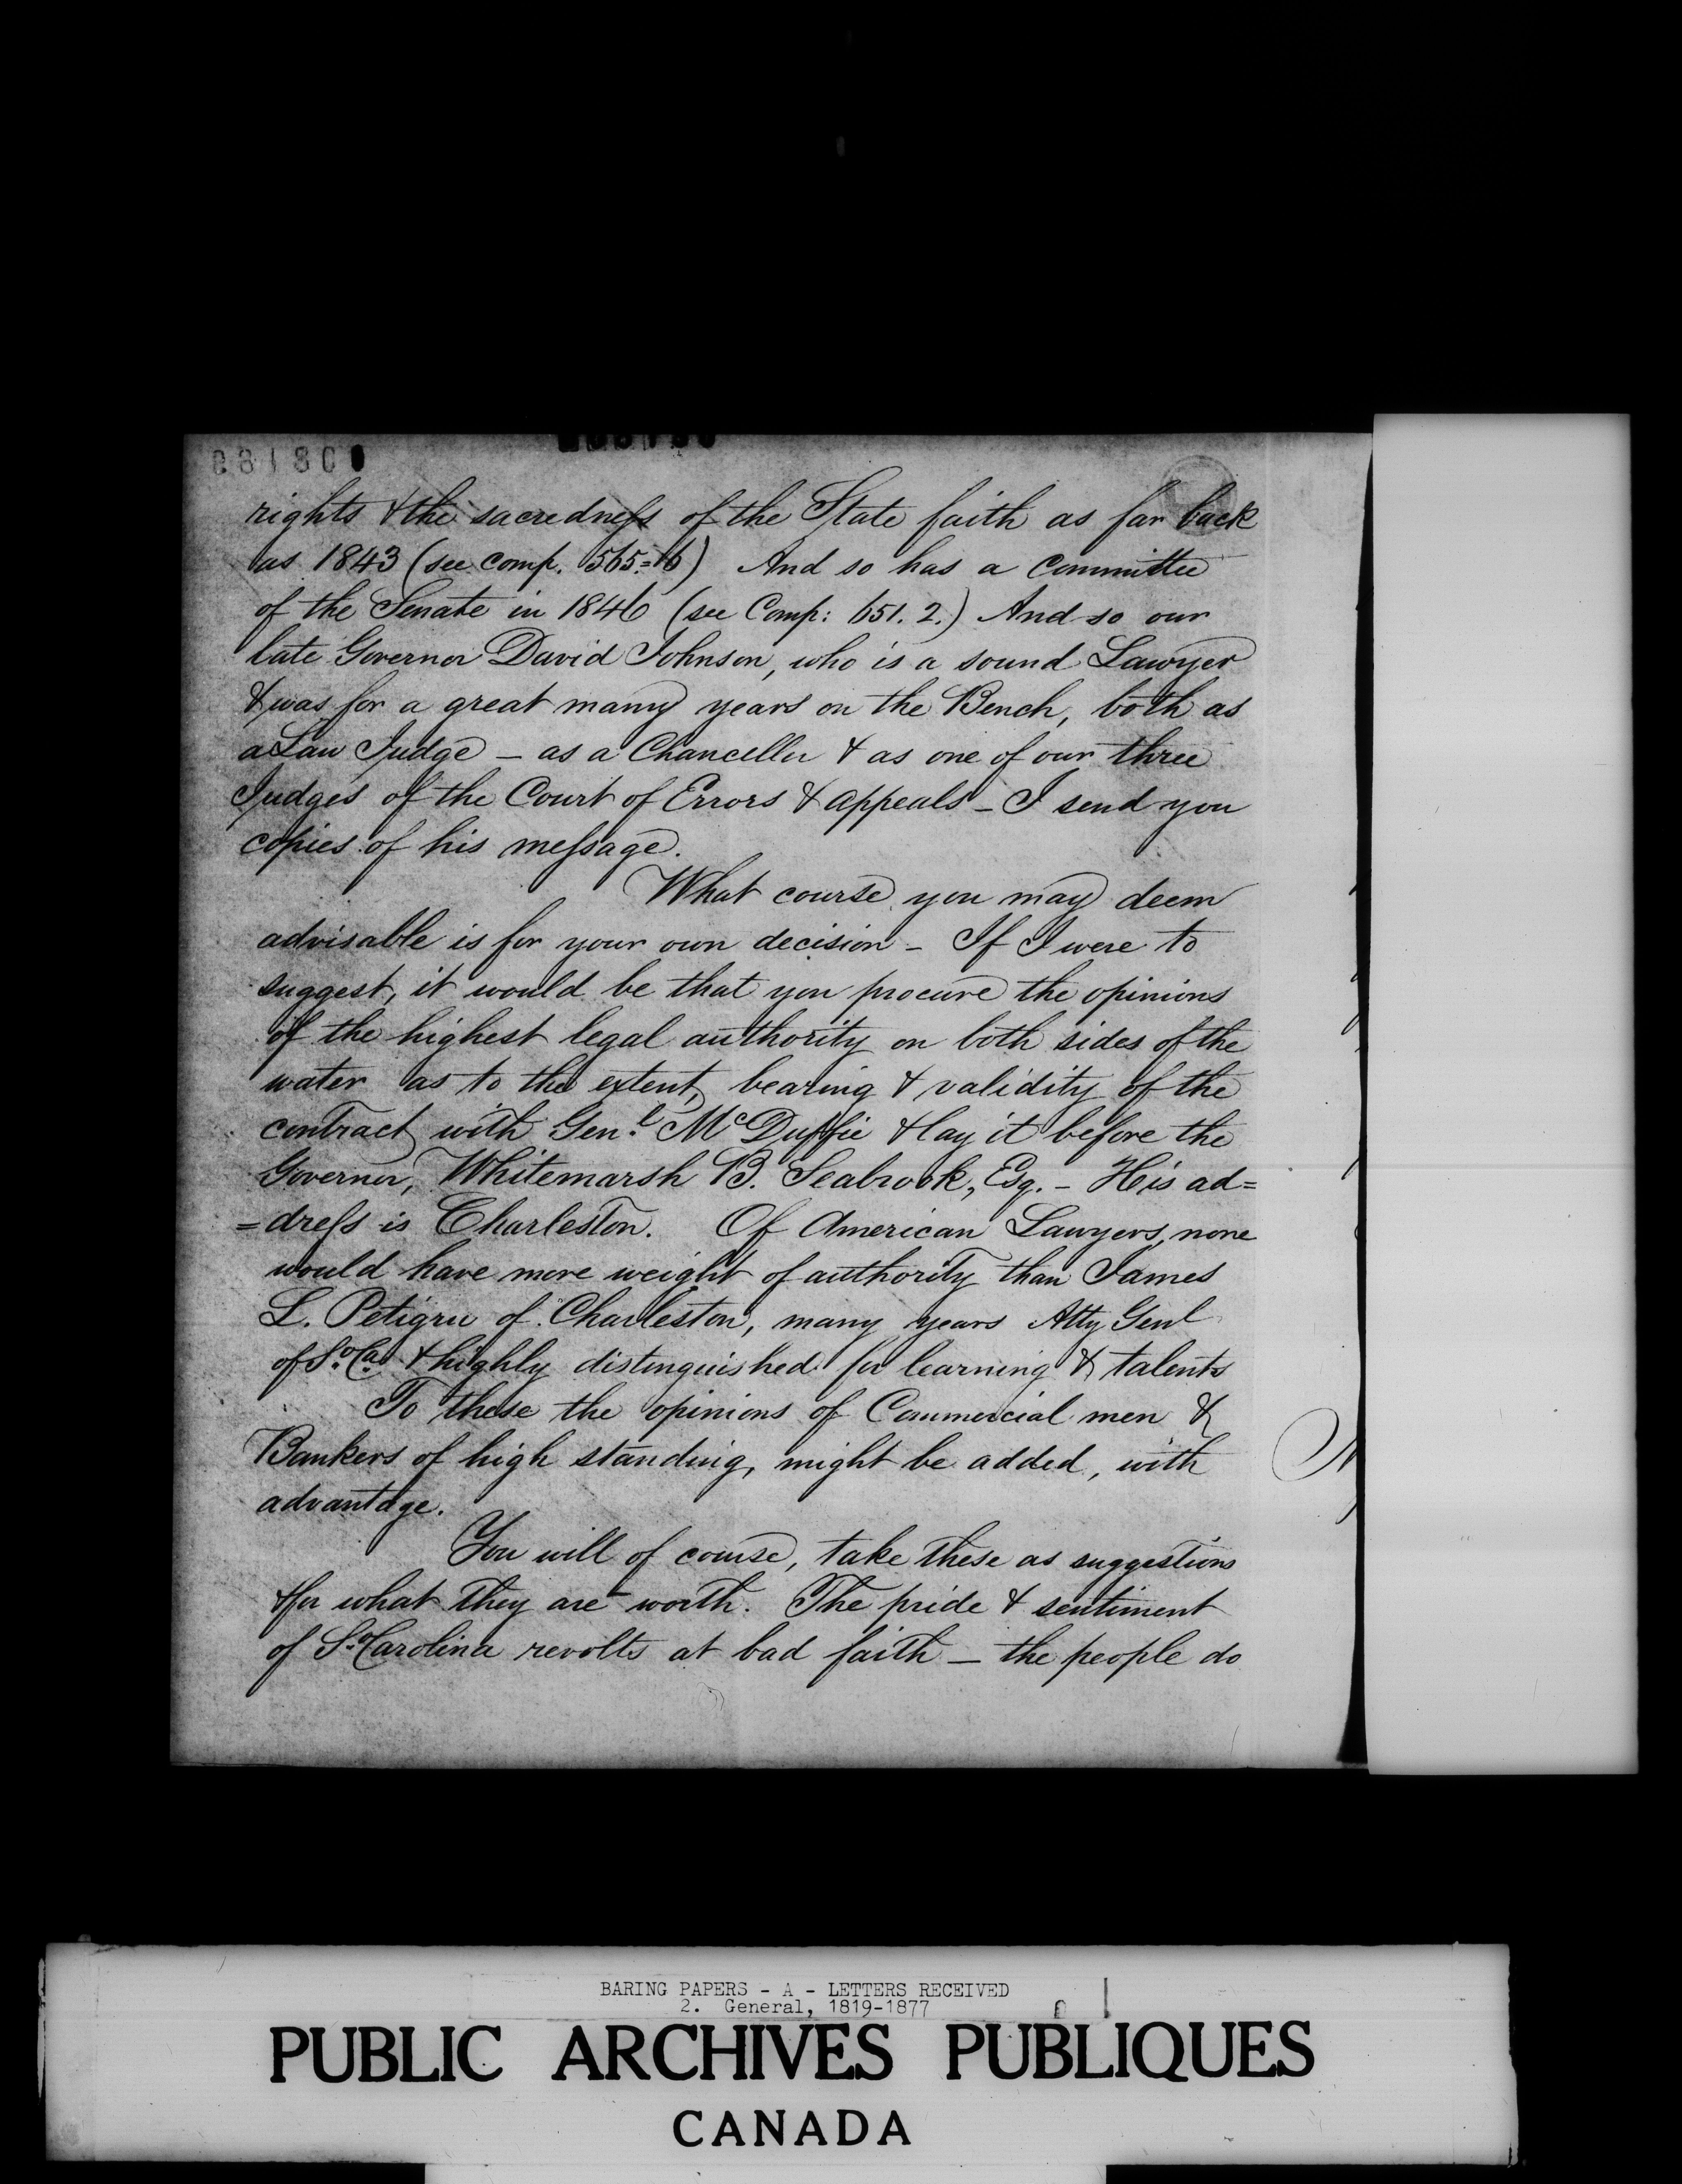 rights & the sacredness of the State faith as far back
as 1843 (see comp. 565=16) And so has a Committee
of the Senate in 1846 (see Comp: 651. 2.) And so our
late Governor David Johnson, who is a sound Lawyer
& was for a great many years on the Bench, both as
a Law Judge – as a Chancellor & as one of our three
Judges of the Court of Errors & appeals – I send you
copies of his message.
What course you may deem
advisable is for your own decision – If I were to
suggest, it would be that you procure the opinions
of the highest legal authority on both sides of the
water as to the extent, bearing & validity of the
contract with Genl. McDuffie & lay it before the
Governor, Whitemarsh B. Seabrook, Esq. – His ad=
=dress is Charleston. Of American Lawyers, none
would have more weight of authority than James
L. Petigru of Charleston, many years Atty Genl
of So. Ca. & highly distinguished for learning & talents
To these the opinions of Commercial men &
Bankers of high standing, might be added, with
advantage.
You will of course, take these as suggestions
& for what they are worth. The pride & sentiment
of So. Carolina revolts at bad faith – the people do
BARING PAPERS - A - LETTERS RECEIVED
2. General, 1819-1877
PUBLIC ARCHIVES PUBLIQUES
CANADA